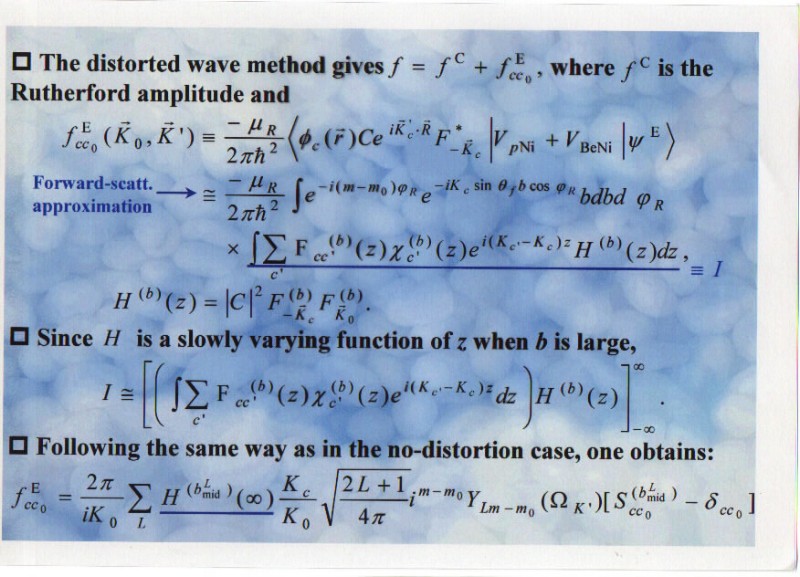 ❑ The distorted wave method gives f = f^C + f^E_{cc_0}, where f^C is the
Rutherford amplitude and
f^E_{cc_0}(\vec{K}_0, \vec{K}') ≡ \frac{-μ_R}{2πħ^2} ⟨φ_c(\vec{r})Ce^{i\vec{K}'_c·\vec{R}} F^*_{-\vec{K}_c} | V_{pNi} + V_{BeNi} | ψ^E⟩
Forward-scatt.
approximation
≅ \frac{-μ_R}{2πħ^2} ∫e^{-i(m-m_0)φ_R} e^{-iK_c sin θ_f b cos φ_R} bdbd φ_R
× ∫∑_{c'} F_{cc'}^{(b)}(z)χ_{c'}^{(b)}(z)e^{i(K_{c'}-K_c)z} H^{(b)}(z)dz, ≡ I
H^{(b)}(z) = |C|^2 F^{(b)}_{-\vec{K}_c} F^{(b)}_{\vec{K}_0}.
❑ Since H is a slowly varying function of z when b is large,
I ≅ [(∫∑_{c'} F_{cc'}^{(b)}(z)χ_{c'}^{(b)}(z)e^{i(K_{c'}-K_c)z} dz)H^{(b)}(z)]^{∞}_{-∞}.
❑ Following the same way as in the no-distortion case, one obtains:
f^E_{cc_0} = \frac{2π}{iK_0} ∑_L H^{(b^L_{mid})}(∞) \frac{K_c}{K_0} \sqrt{\frac{2L+1}{4π}} i^{m-m_0} Y_{Lm-m_0}(Ω_{K'})[S^{(b^L_{mid})}_{cc_0} - δ_{cc_0}]